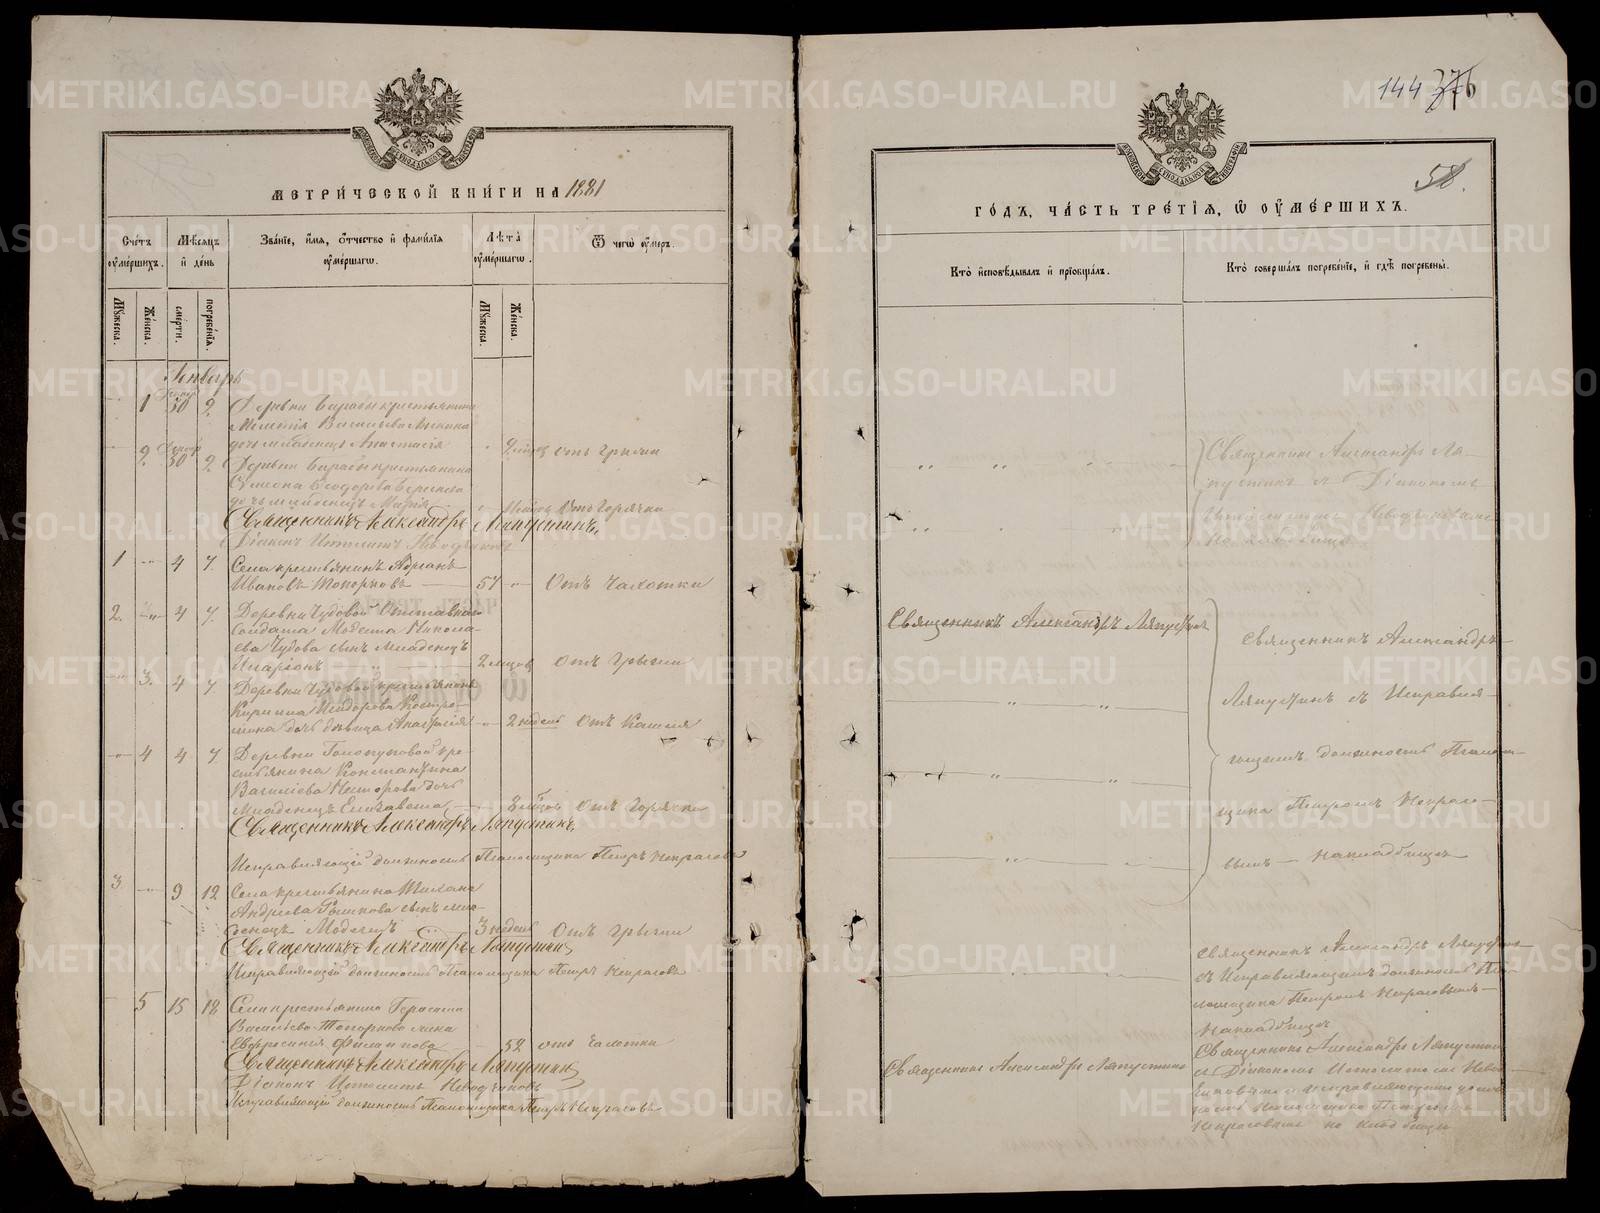 144 376
58.
МЕТРИ́ЧЕСКОЙ КНИ́ГИ НА 1881
Сче́тъ ᲂу҆ме́ршихъ.
Мѣ́сяцъ и҆ де́нь
Зва́нїе, и҆́мя, ѻ҆́тчество и҆ фами́лїя ᲂу҆ме́ршагѡ.
Лѣ́та ᲂу҆ме́ршагѡ.
Ѿ чегѡ̀ ᲂу҆́меръ.
Мꙋ́жеска.
Же́нска.
сме́рти.
погребе́нїя.
Мꙋ́жеска.
Же́нска.
Январь
1 30 2 Деревни крестьянина
Василіева
дочь младенецъ Анастасія 2 отъ грыжи
2 30 2 Деревни крестьянина
Симеона Ѳеодорова
дочь младенецъ Марія отъ горячки
Священникъ Александръ Ляпустинъ
Діаконъ Ипполитъ
1 " 4 7 Села крестьянинъ Адріанъ
Ивановъ Топорковъ 57 " Отъ чахотки
2. " 4 7 Деревни Чудовой Отставнаго
Солдата Модеста Никола-
ева Чудова сынъ младенецъ
Иларіонъ 2 мѣсяц Отъ Грыжи
" 3. 4 7 Деревни Чудовой крестьянина
Кирилла Исидорова Костро-
мина дочь дѣвица Анастасія " 2 недѣль Отъ Кашля
" 4 4 7 Деревни Голопуповой кре-
стьянина Константина
Василіева дочь
Младенецъ Елисавета 8 мѣсяц Отъ Горячки
Священникъ Александръ Ляпустинъ
Исправляющій должность Псаломщика Петръ Некрасовъ
3 " 9 12 Села крестьянина
Андреева сынъ мла-
денецъ Модестъ 3 недѣль Отъ Грыжи
Священникъ Александръ Ляпустинъ
Исправляющій должность Псаломщика Петръ Некрасовъ
5 15 18 Села крестьянина Герасима
Василіева Топоркова жена
Евфросинія Филиппова 52 отъ Чахотки
Священникъ Александръ Ляпустинъ
Діаконъ Ипполитъ
Исправляющій должность Псаломщика Петръ Некрасовъ
ГО́ДЪ, ЧА́СТЬ ТРЕ́ТЇЯ, Ѡ҆ ОУ҆МЕ́РШИХЪ.
Кто̀ и҆сповѣ́дывалъ и҆ прїѡбща́лъ.
Кто̀ соверша́лъ погребе́нїе, и҆ гдѣ̀ погребены̀.
Священникъ Александръ Ля-
пустинъ съ Діакономъ
на кладбищѣ
Священникъ Александръ Ляпустинъ
Священникъ Александръ
Ляпустинъ съ Исправля-
ющимъ должность Псалом-
щика Петромъ Некрасо-
вымъ – на кладбищѣ
Священникъ Александръ Ляпустинъ
съ Исправляющимъ должность Пса-
ломщика Петромъ Некрасовымъ –
на кладбищѣ
Священникъ Александръ Ляпустинъ
Священникъ Александръ Ляпустинъ
съ Діакономъ Ипполитомъ
и исправляющимъ долж-
ность Псаломщика Петромъ
Некрасовымъ на кладбищѣ
METRIKI.GASO-URAL.RU